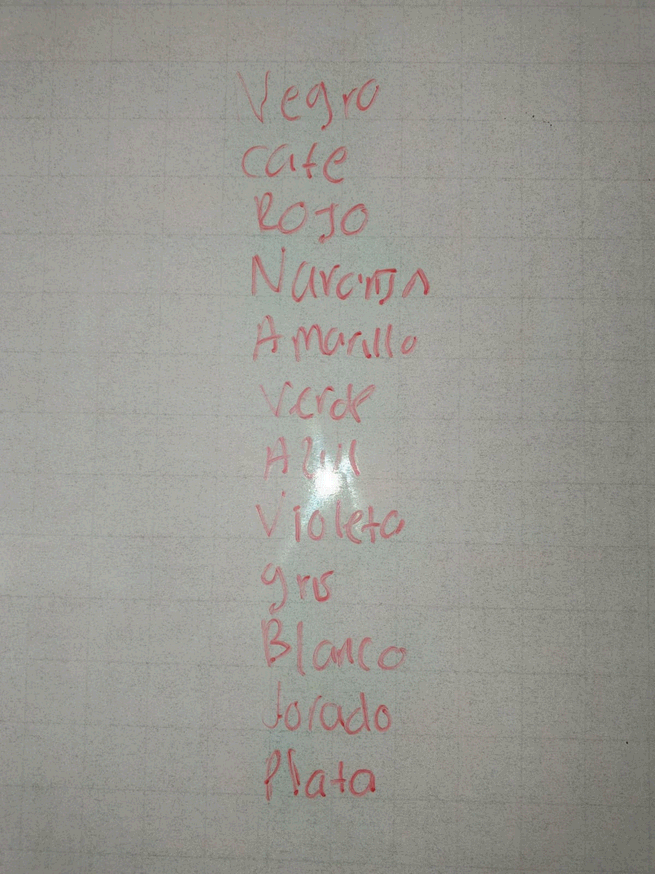 Negro
cafe
ROJO
Naranja
Amarillo
Verde
Azul
Violeta
gris
Blanco
dorado
Plata